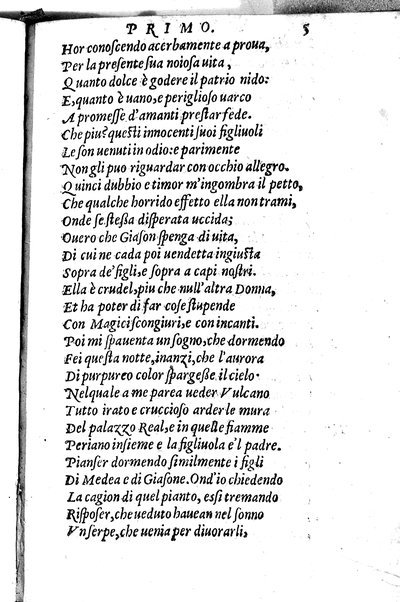 PRIMO. 5
Hor conoscendo acerbamente a proua,
Per la presente sua noiosa uita,
Quanto dolce è godere il patrio nido:
E, quanto è uano, e periglioso uarco
A promesse d'amanti prestar fede.
Che piu? questi innocenti suoi figliuoli
Le son uenuti in odio: e parimente
Non gli puo riguardar con occhio allegro.
Quinci dubbio e timor m'ingombra il petto,
Che qualche horrido effetto ella non trami,
Onde se stessa disperata uccida;
Ouero che Giason spenga di uita,
Di cui ne cada poi uendetta ingiusta
Sopra de' figli, e sopra a capi nostri.
Ella è crudel, piu che null'altra Donna,
Et ha poter di far cose stupende
Con Magici scongiuri, e con incanti.
Poi mi spauenta un sogno, che dormendo
Fei questa notte, inanzi, che l'aurora
Di purpureo color spargesse il cielo.
Nelquale a me parea ueder Vulcano
Tutto irato e cruccioso arder le mura
Del palazzo Real, e in quelle fiamme
Periano insieme e la figliuola e'l padre.
Pianser dormendo similmente i figli
Di Medea e di Giasone. Ond'io chiedendo
La cagion di quel pianto, essi tremando
Risposer, che ueduto hauean nel sonno
Vn serpe, che uenia per diuorarli,